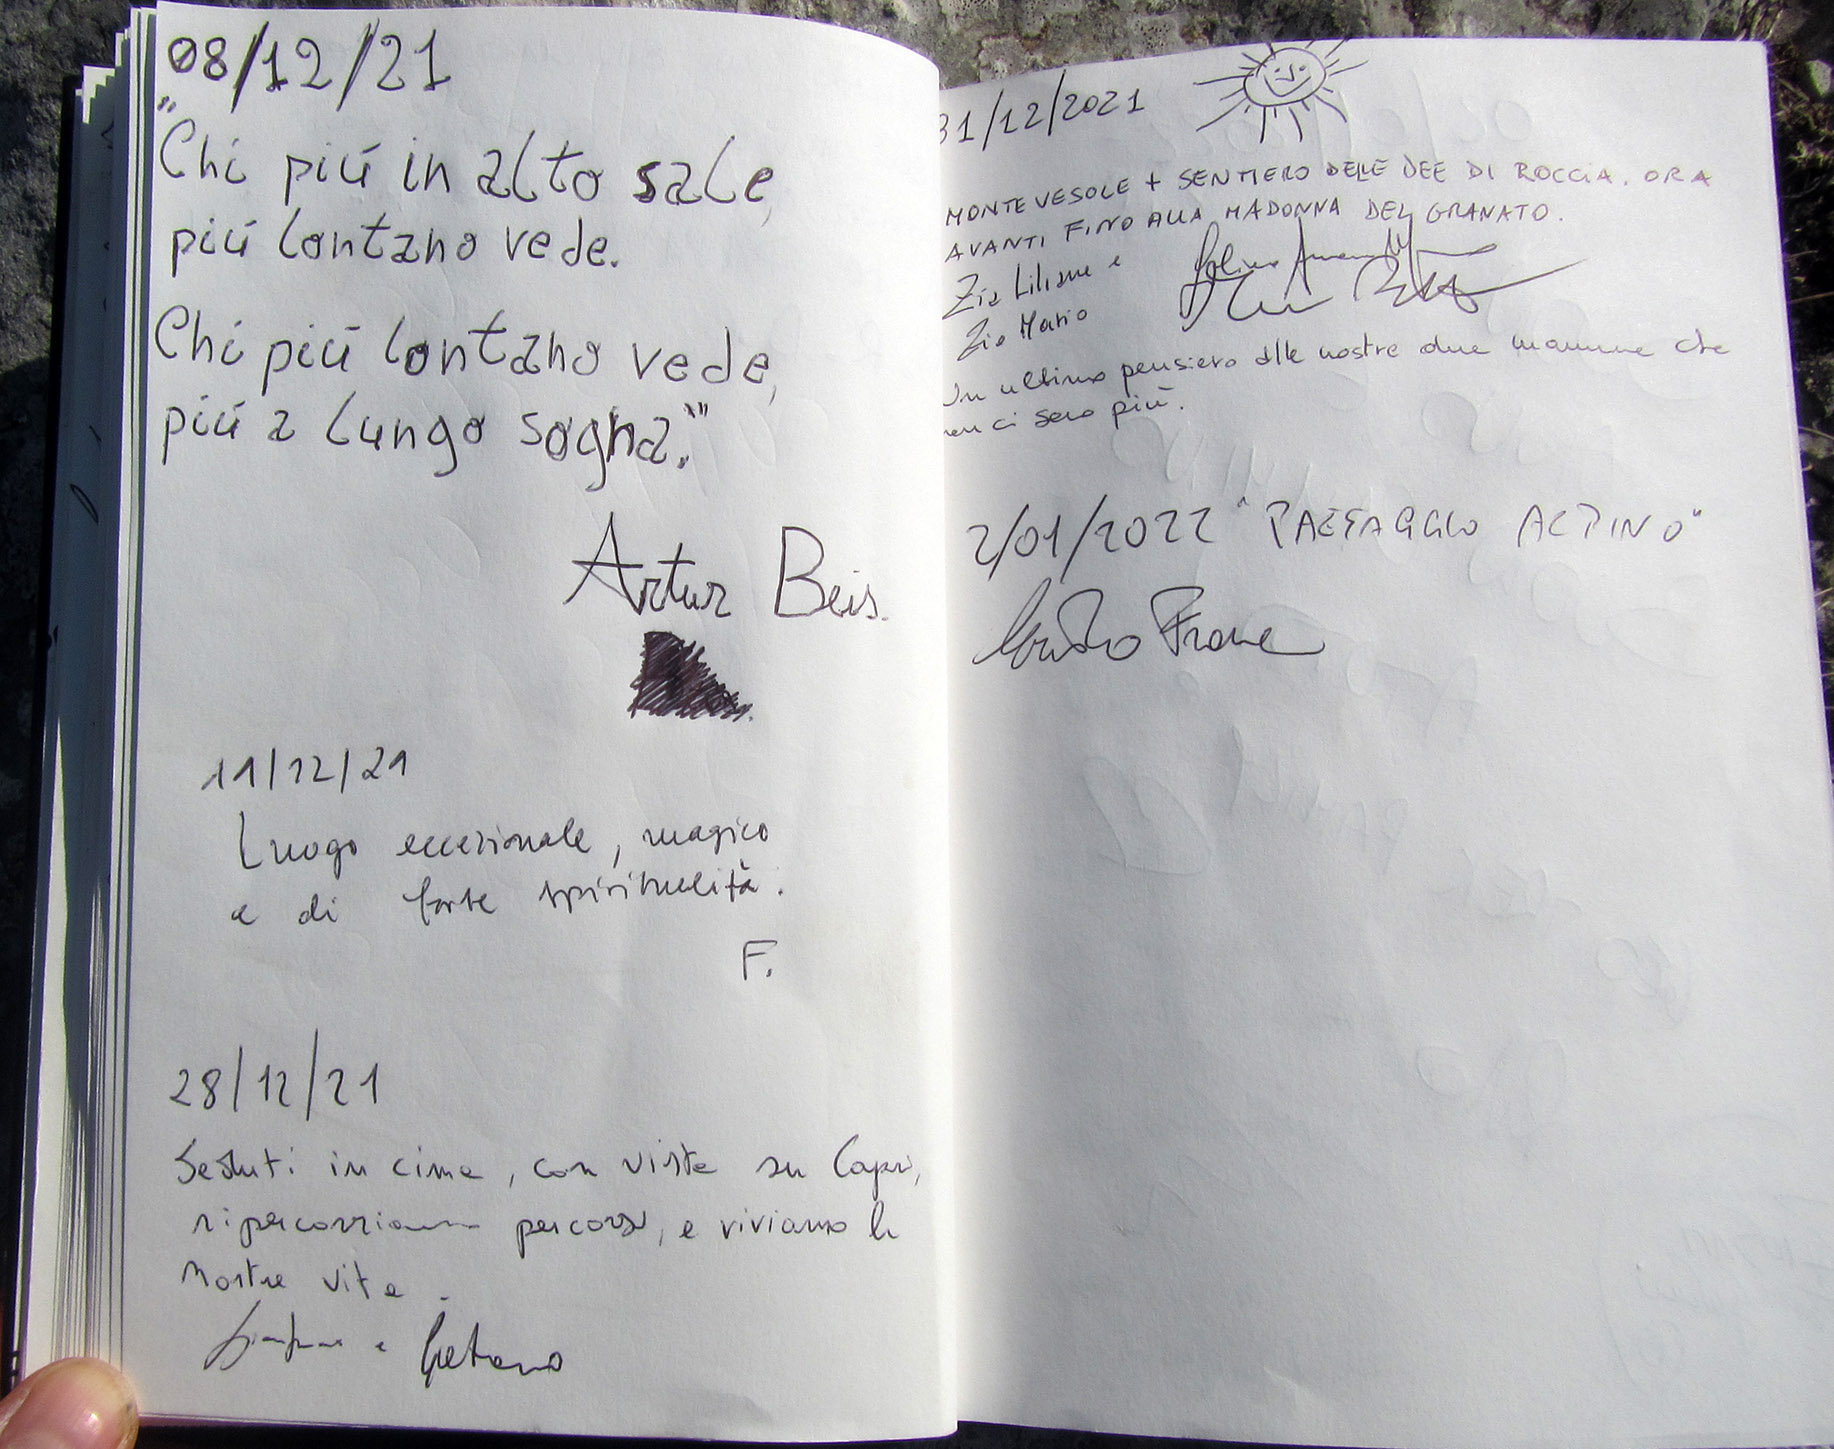 08/12/21
"Chi piú in alto sale,
piú lontano vede.
Chi piú lontano vede,
piú a lungo sogna."
Artur Beis.
11/12/21
Luogo eccezionale, magico
e di forte spiritualità.
F.
28/12/21
Seduti in cima, con vista su Capri,
ripercorriamo percorsi, e viviamo le
nostre vite.
e Gaetano
31/12/2021
MONTE VESOLE + SENTIERO DELLE DEE DI ROCCIA. ORA
AVANTI FINO ALLA MADONNA DEL GRANATO.
Zia Liliana e
Zio Mario
Un ultimo pensiero alle nostre due mamme che
non ci sono più.
2/01/2022 "PAESAGGIO ALPINO"